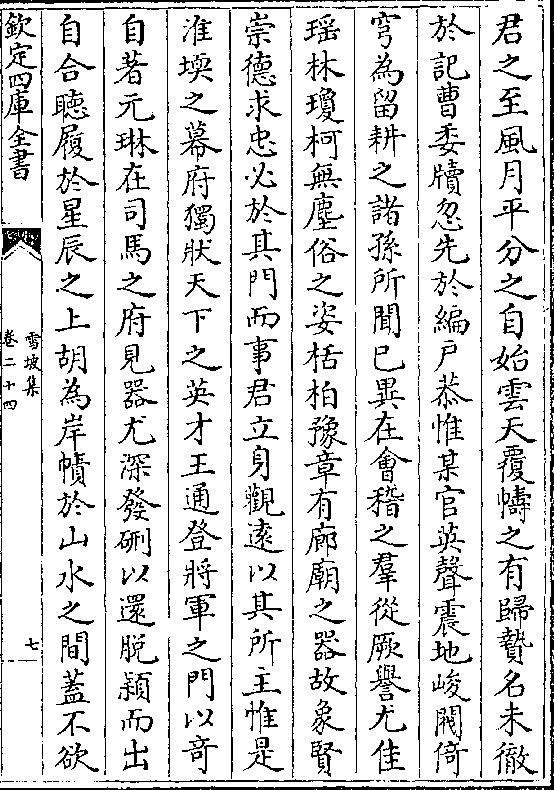 君之至風月平分之自始雲天覆幬之有歸贄名未徹
於記曹委牘忽先於編戸恭惟某官英聲震地峻閥倚
穹為留耕之諸孫所聞已異在㑹稽之羣從厥譽尤佳
瑶林瓊柯無塵俗之姿栝柏豫章有廊廟之器故象賢
崇德求忠必於其門而事君立身觀逺以其所主惟是
淮堧之幕府獨狀天下之英才王通登將軍之門以竒
自著元琳在司馬之府見器尤深發硎以還脱穎而出
自合聽履於星辰之上胡為岸幘於山水之間葢不欲
欽定四庫全書
雪坡集
卷二十四
七